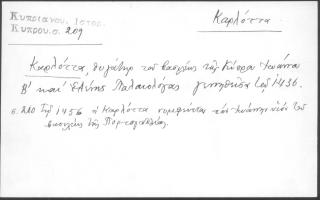 Καρλόττα.
Κυπριανου, Ιστορ.
Κυπρου. σ. 209
Καρλόττα, θυγάτηρ του βασιλέως της Κύπρου Ιωάννου
Β' και Ελένης Παλαιολόγας γεννηθείσα τῳ 1436.
σ. 210 Τῳ 1456 η Καρλόττα νυμφεύεται τον Ιωάννην υιόν του
βασιλέως της Πορτογαλλίας.